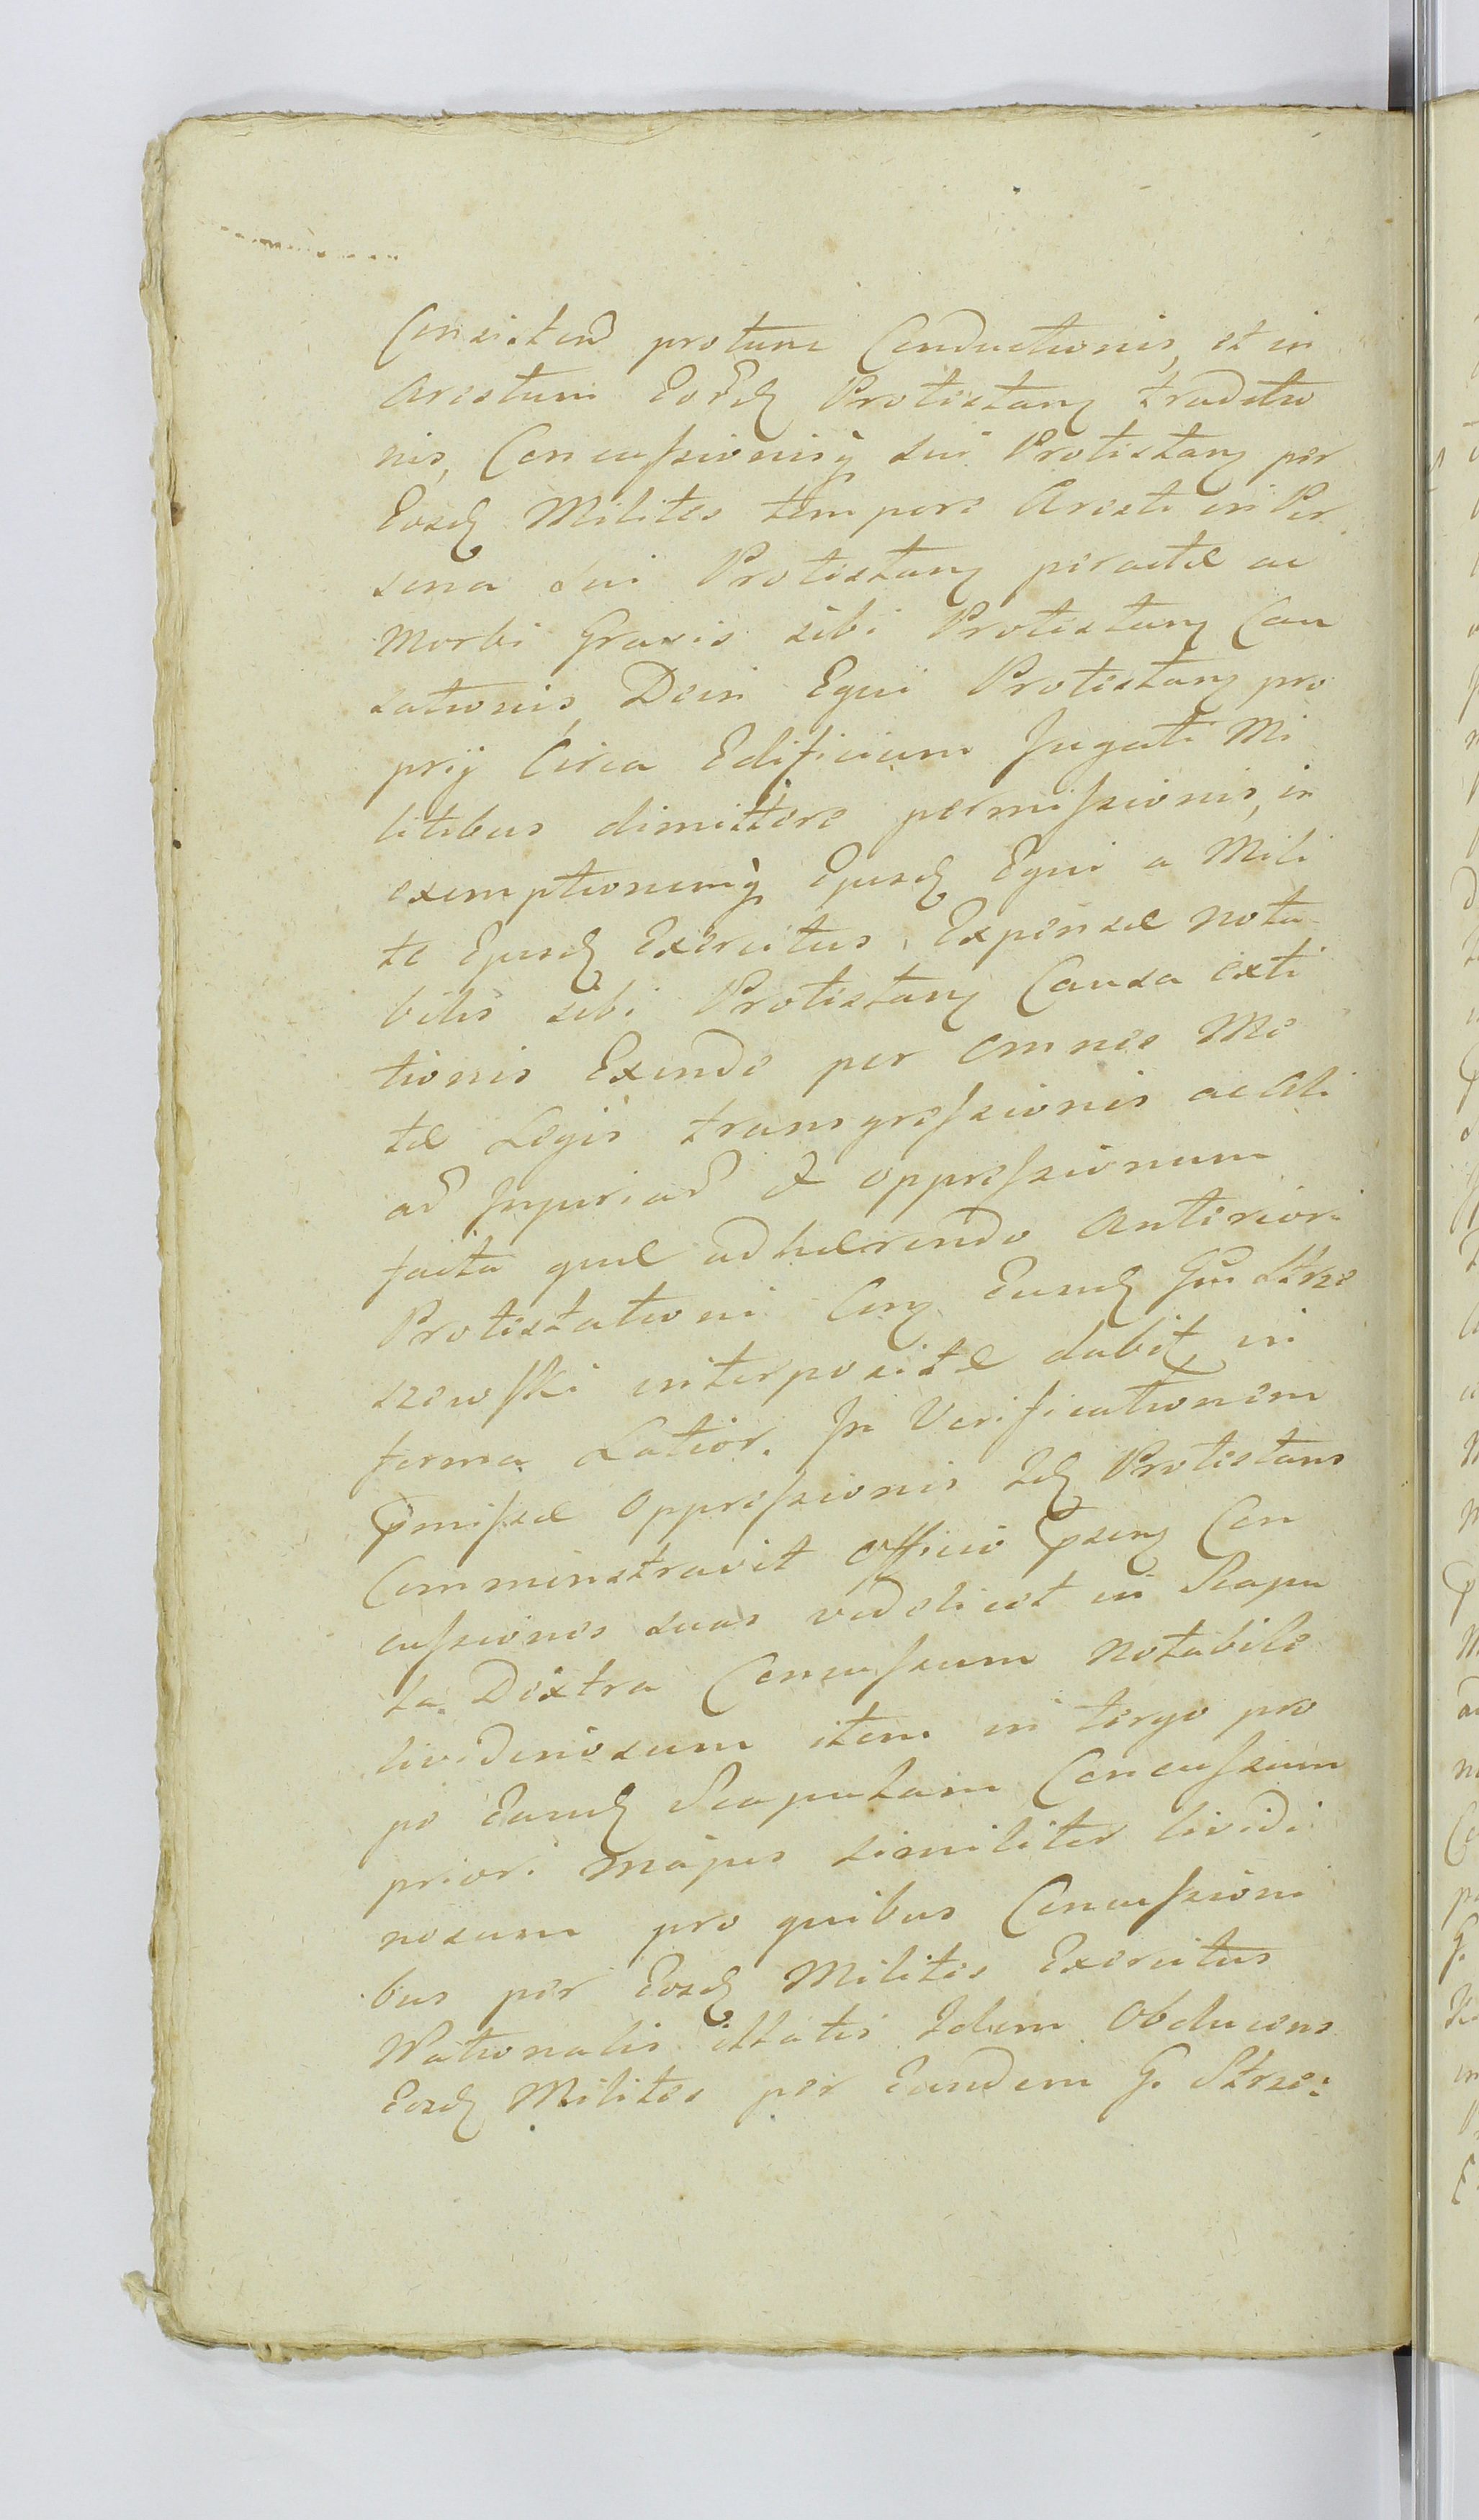 Consisten protunc Conductionis, et in
Arestum Eosd Protestan traditio
nis, Concussionisq sui Protestan per
Eosd Milites tempore Aresti in Per
sona sui Protestan peractæ ac
Morbi Gravis sibi Protestan Cau
sationis, Dein Equi Protestan pro
prij Circa Edificium Jugati Mi
litibus dimittere permissionis, in
exemptionemq Ejusd Equi a Mili
te Ejusd Exercitus, Expensæ nota
bilis sibi Protestan Causa exti
tionis Exinde per omnes Me
tæ Legis transgressionis ac Ali
ad Injuriad et oppressionum
facta quæ adhærendo Anteriori
Protestationi Con Eund Gm Strze
szewski interpositæ dabit in
forma Latior. In Verificationem
Pmissæ Oppressionis Id Protestans
Comminstravit officio Psen Con
cussiones suas videlicet in Scapu
la Dextra Concussum notabile
lividinosum item in tergo pro
pe Eamd Scapulam Concussum
priori majus similiter lividi
nosum pro quibus Concussioni
bus per Eosd Milites Exercitus
Nationalis illatis Idem Obducens
Eosd Milites per Eundem G. Strze: